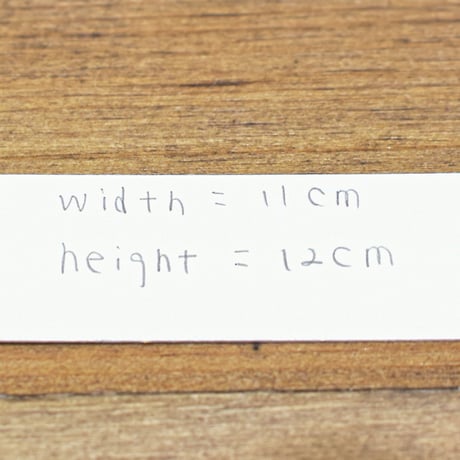 width = 11cm
height = 12cm